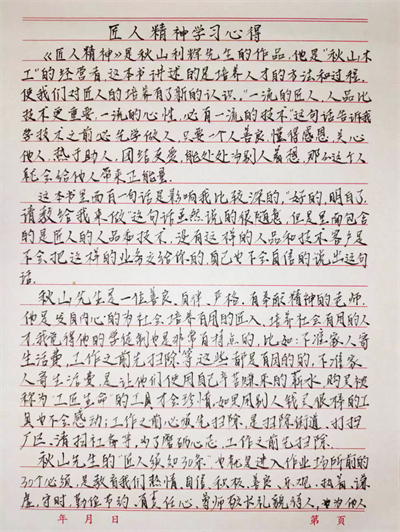 匠人精神学习心得
《匠人精神》是秋山利辉先生的作品，他是"秋山木
工"的经营者，这本书讲述的是培养人才的方法和过程，
使我们对匠人的培养有了新的认识。"一流的匠人，人品比
技术更重要，一流的心性，必有一流的技术"这句话告诉我
学技术之前必先学做人，只要一个人善良懂得感恩，关心
他人，热于助人，团结友爱，能处处为别人着想，那么这个人
就会给他人带来正能量。
这本书里面有一句话是影响我比较深的，"好的，明白了，
请教给我来做"这句话虽然说的很随意，但是里面包含
的是匠人的人品和技术，没有这样的人品和技术客户是
不会把这样的业务交给你的，自己也不会自信的说出这句
话。
秋山先生是一位善良、自律、严格，有奉献精神的老师，
他是发自内心的为社会培养有用的匠人，培养社会有用的人
才，我觉得他的学徒制也是非常有特点的，比如：不准家人寄
生活费，工作之前先扫除等这些都是有目的的，不准家
人寄生活费是让他们使用自己辛苦赚来的薪水，购买被
称为"工匠生命"的工具才会珍惜，如果用别人钱买很棒的工
具也不会感动；工作之前必须先扫除，是扫除街道、打扫
厂区，清扫社区等，为了磨砺心志，工作之前先扫除。
秋山先生的"匠人须知30条"也就是进入作业场所前的
30个必须，是教育我们热情、自信、积极、善良、乐观、执着、谦
虚、守时、勤俭节约、有责任心、尊师敬长礼貌待人，为他人
年 月 日 第 页